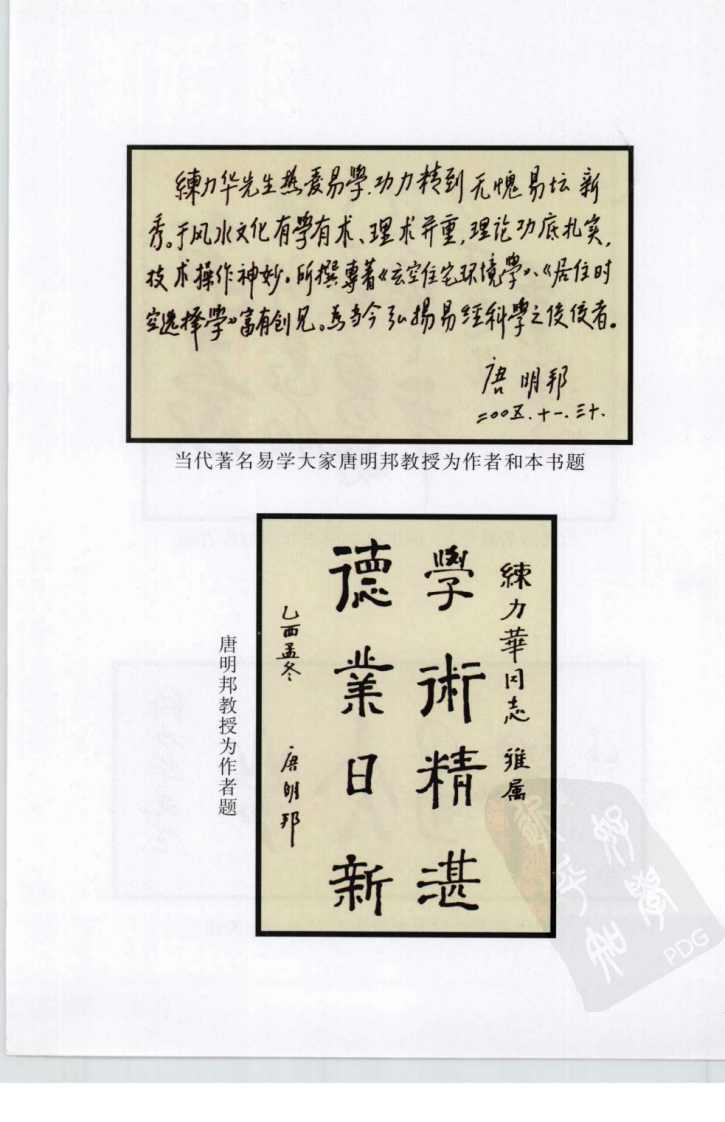 練力华先生热爱易學.功力精到 无愧易坛 新
秀。于风水文化有學有术、理术并重,理论功底扎实,
技术操作神妙。所撰專著《玄空住宅环境學》、《居住时
空选择學》富有创见。为当今弘揚易經科學之佼佼者。
唐明邦
二00五.十一.三十.
当代著名易学大家唐明邦教授为作者和本书题
練力華同志 雅属
學術精湛
德業日新
乙酉孟冬 唐明邦
唐明邦教授为作者题
PDG